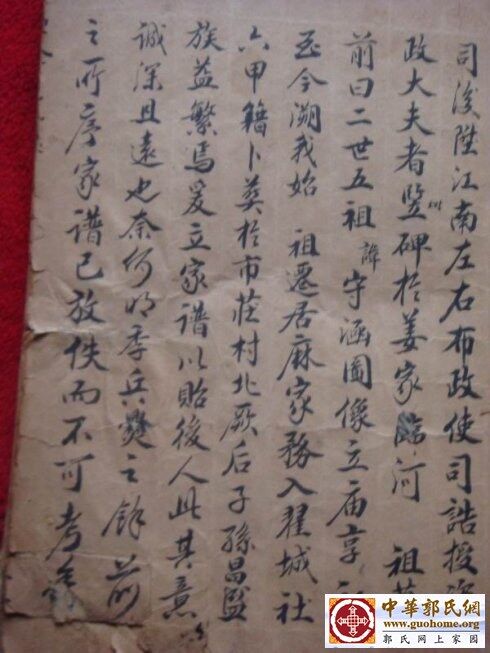 司後陞江南左右布政使司誥授資
政大夫者竪碑於姜家臨河 祖塋
前曰二世五祖諱守涵圖像立庙享
至今溯我始 祖遷居麻家務入翟城社
六甲籍卜葬於市莊村北厥后子孫昌盛
族益繁焉爰立家譜以貽後人此其意
誠深且遠也奈何明季兵燹之餘前
之所序家譜已放佚而不可考
中華郭氏網
www.guohome.org
郭氏网上家园